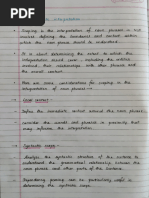 interpretation
Scoping in the interpretation of noun phrases in nlp
involves defining the boundaries and context within
which the noun phrase should be understood.
It is about determining the extent to which the
interpretation should cover, including the entities
involved, their relationships with other phrases and
overall context.
There are some considerations for scoping in the
interpretation of noun phrases:
Local context:
Define the immediate context around the noun phrase.
Consider the words and phrases in proximity that
may influence the interpretation.
Syntactic scope:
Analyze the syntactic structure of the sentence to
understand the grammatical relationship between the
noun phrase and other parts of the sentence.
Dependency parsing can be particularly useful in
determining the syntactic scope.